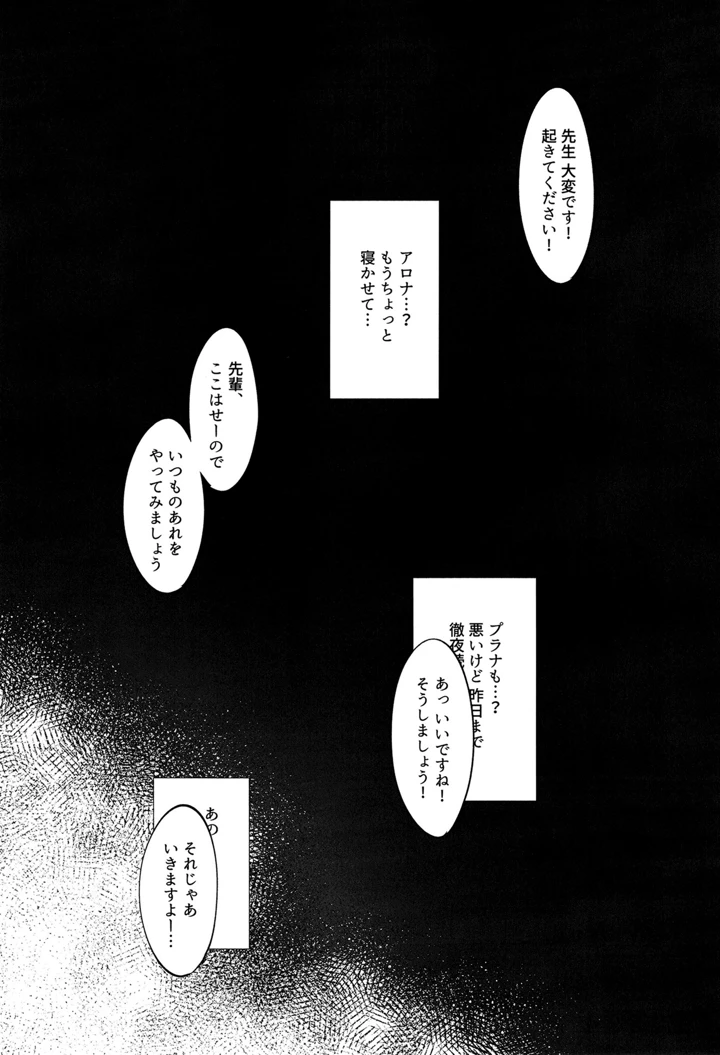 先生 大変です！
起きてください！
アロナ…？
もうちょっと
寝かせて…
先輩、
ここはせーので
いつものあれを
やってみましょう
プラナも…？
悪いけど 昨日まで
徹夜続
あっ いいですね！
そうしましょう！
あの
それじゃあ
いきますよー…